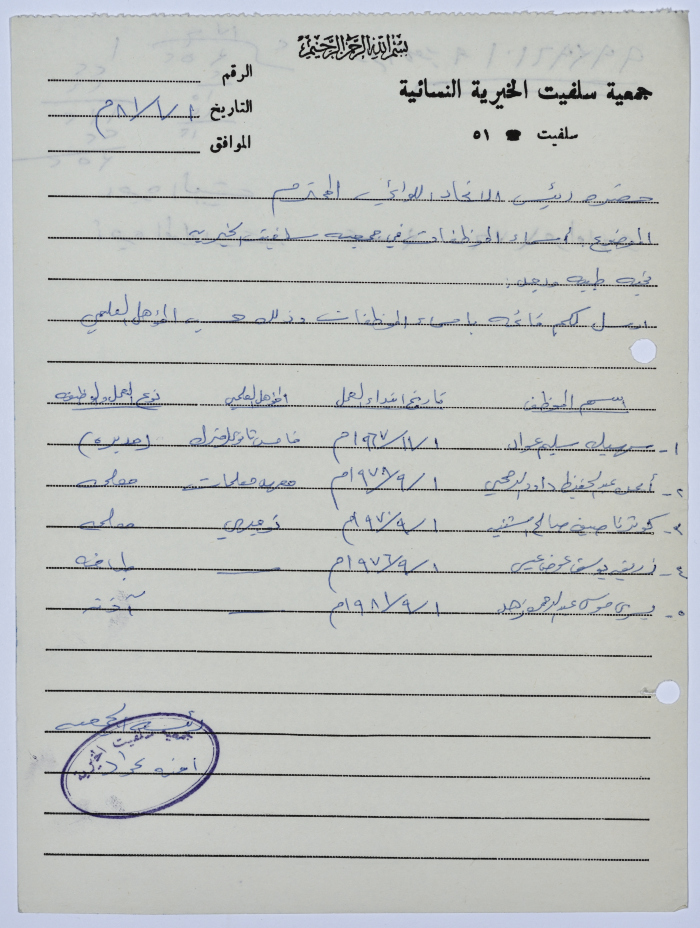 بسم الله الرحمن الرحيم
جمعية سلفيت الخيرية النسائية
سلفيت ☎ ٥١
الرقم
التاريخ ٨١/٦/١م
الموافق
حضرة رئيس الاتحاد اللوائي المحترم
الموضوع: أسماء الموظفات في جمعية سلفيت الخيرية
تحية طيبة وبعد:
ارسل لكم قائمة باسماء الموظفات وذلك حسب المؤهل العلمي
اسم الموظف تاريخ ابتداء العمل المؤهل العلمي نوع العمل والوظيفة
١- سليم عواد ١٩٦٧/١١/١م (مديرة)
٢- عبد الحفيظ داود ١٩٧٨/٩/١م معهد معلمات معلمة
٣- كوثر ناصيف صالح ١٩٧٠/٩/١م توجيهي معلمة
٤- يوسف عوض ١٩٧٦/٩/١م —
٥- يسرى موسى عبد الرحمن ١٩٨١/٩/١م —
رئيسة الجمعية
جمعية سلفيت الخيرية
آمنة عواد